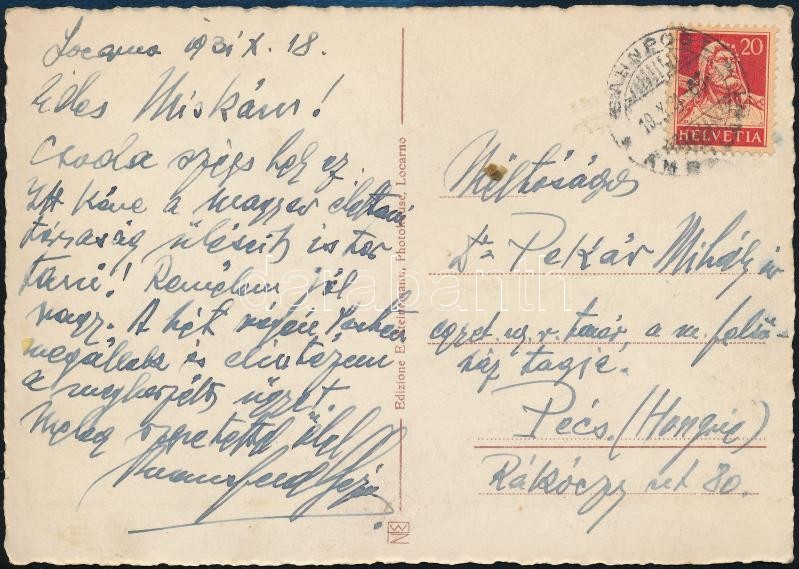 Locarno 1931 X. 18.
Édes Miskám!
Csoda szép hely ez.
Itt kéne a magyar élettani
társaság üléseit is tar
tani! Remélem jól
vagy. A hét végén Pesten
megállok és elintézem
a megbeszélt ügyet.
Meleg szeretettel ölel
Edizione E. Steinemann, Photohouse, Locarno
20
HELVETIA
Méltóságos
Dr. Pekár Mihály úr
egyet. ny. r. tanár, a m. felső-
ház tagja.
Pécs. (Hongrie)
Rákóczy út 80.
darabanth